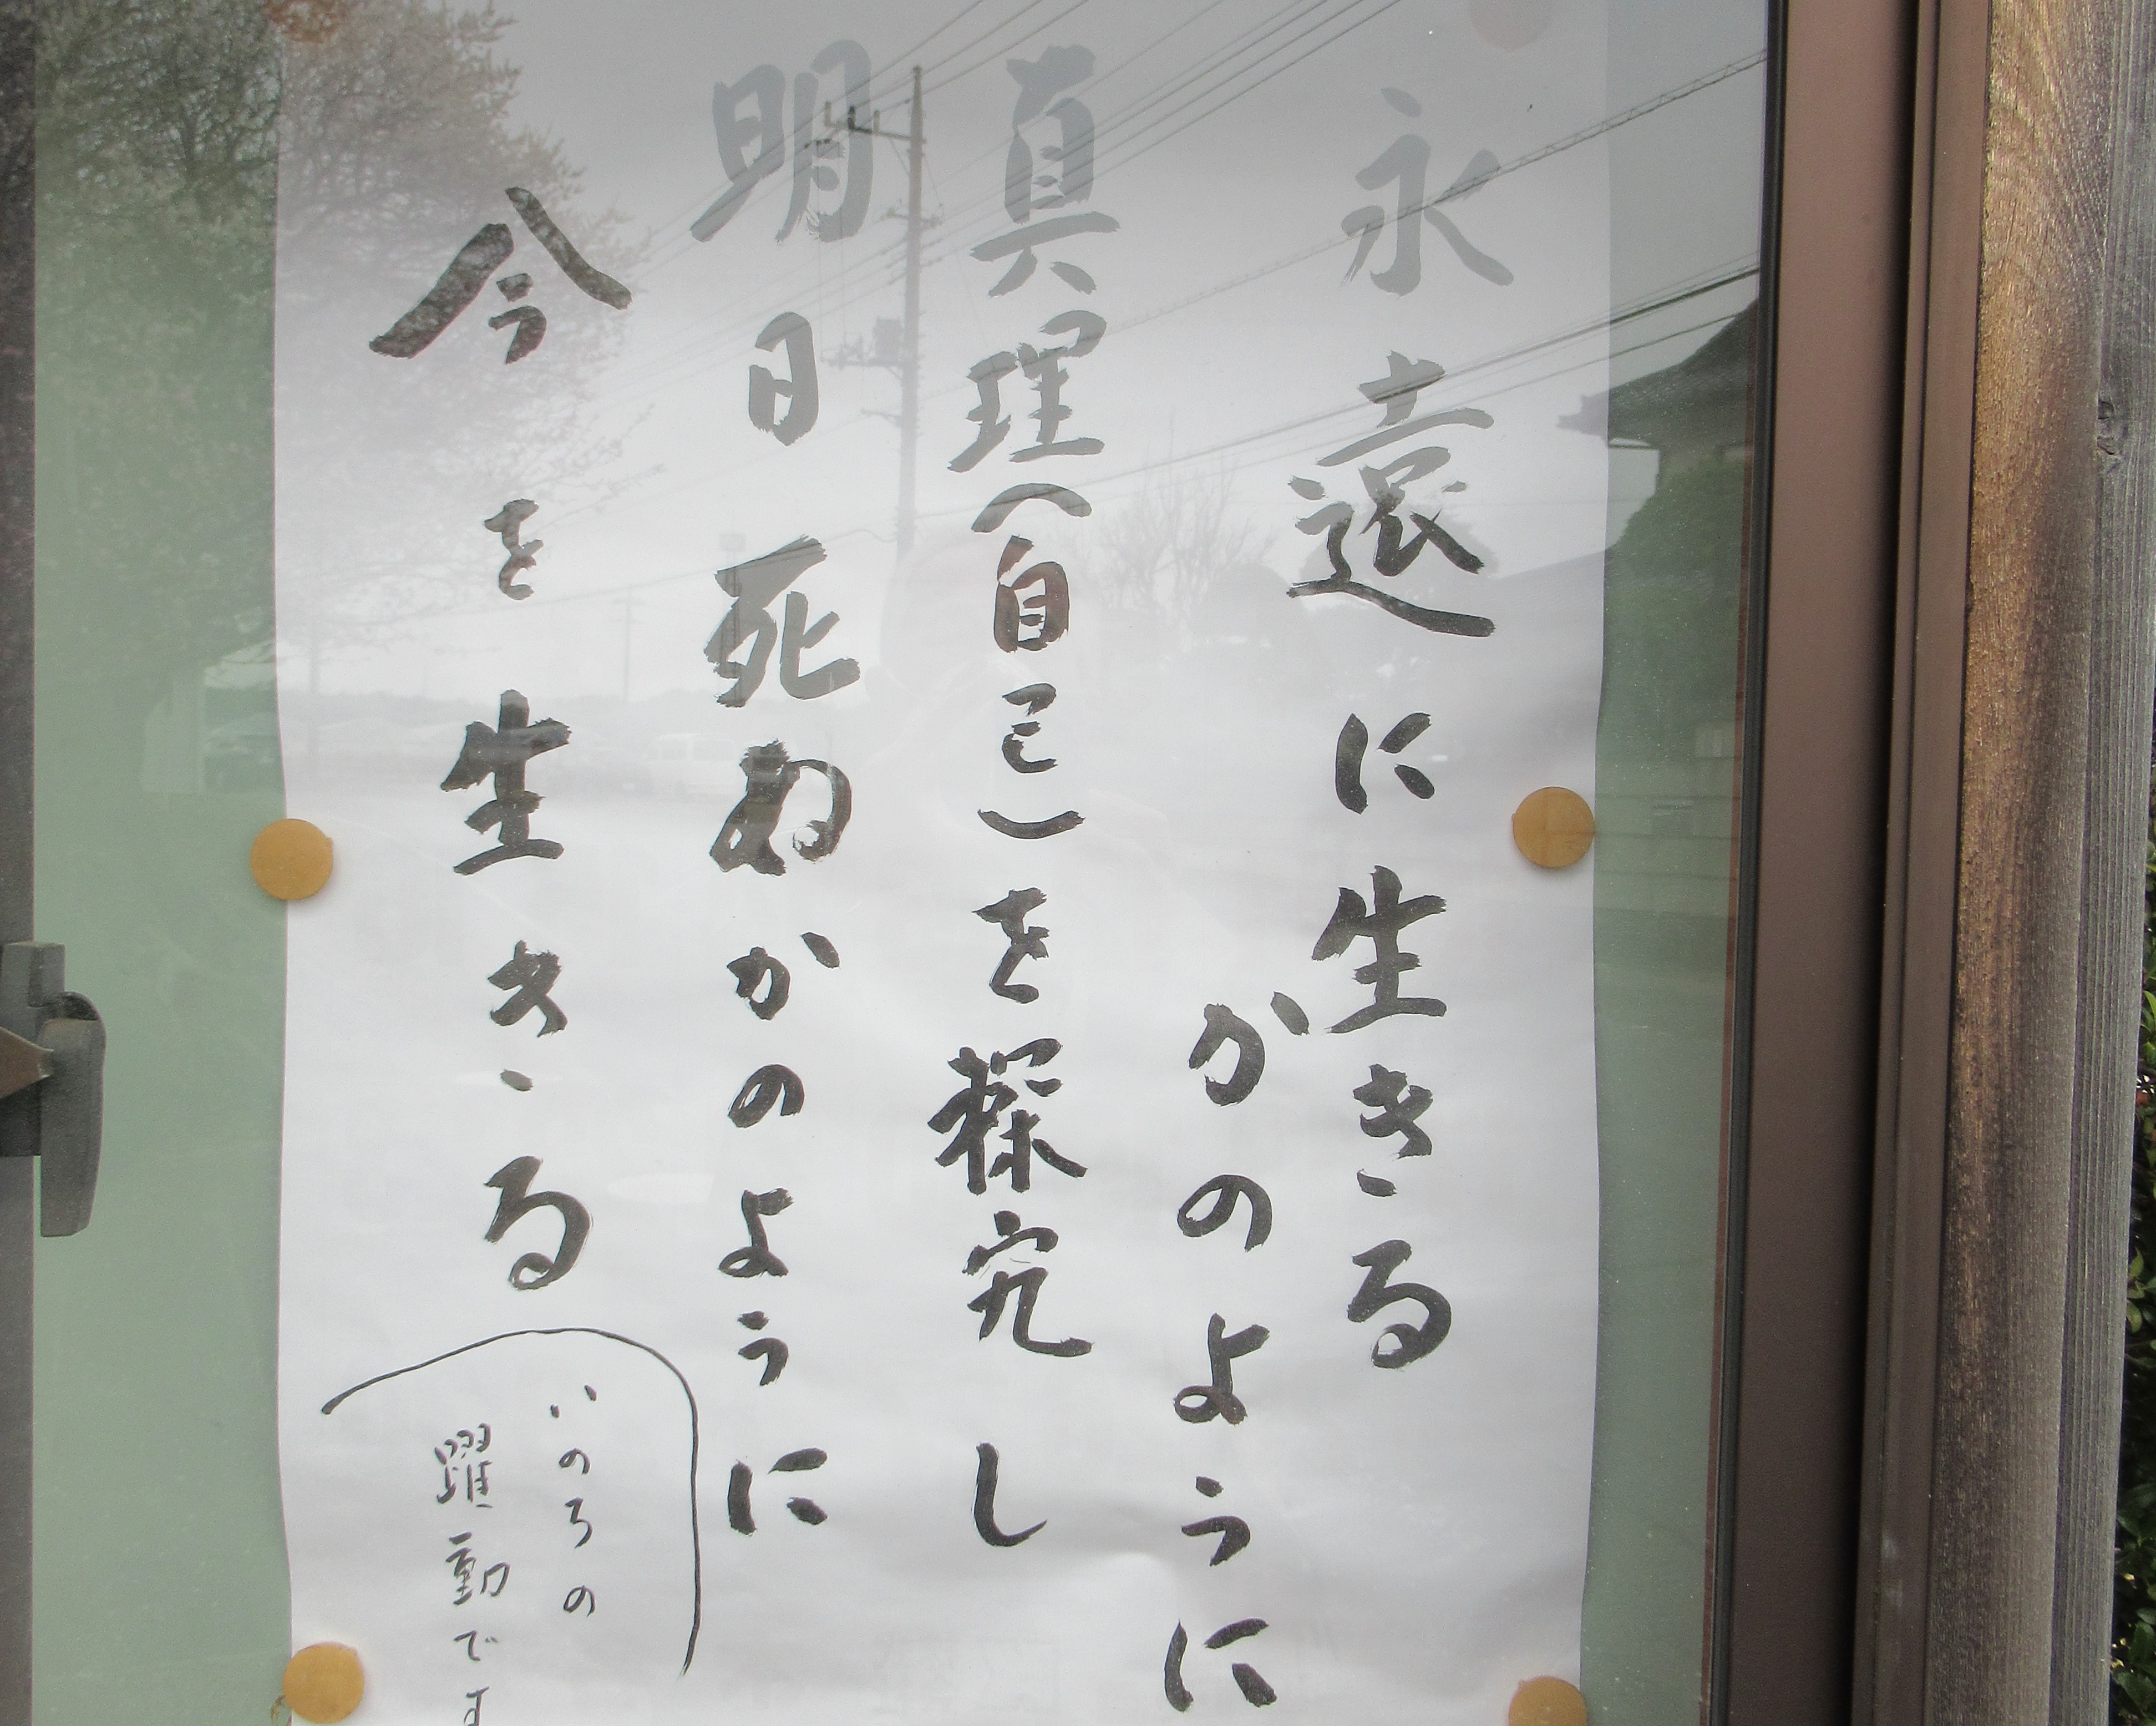 永遠に生きる
かのように
真理(自己)を探究し
明日死ぬかのように
今を生きる
いのちの
躍動です